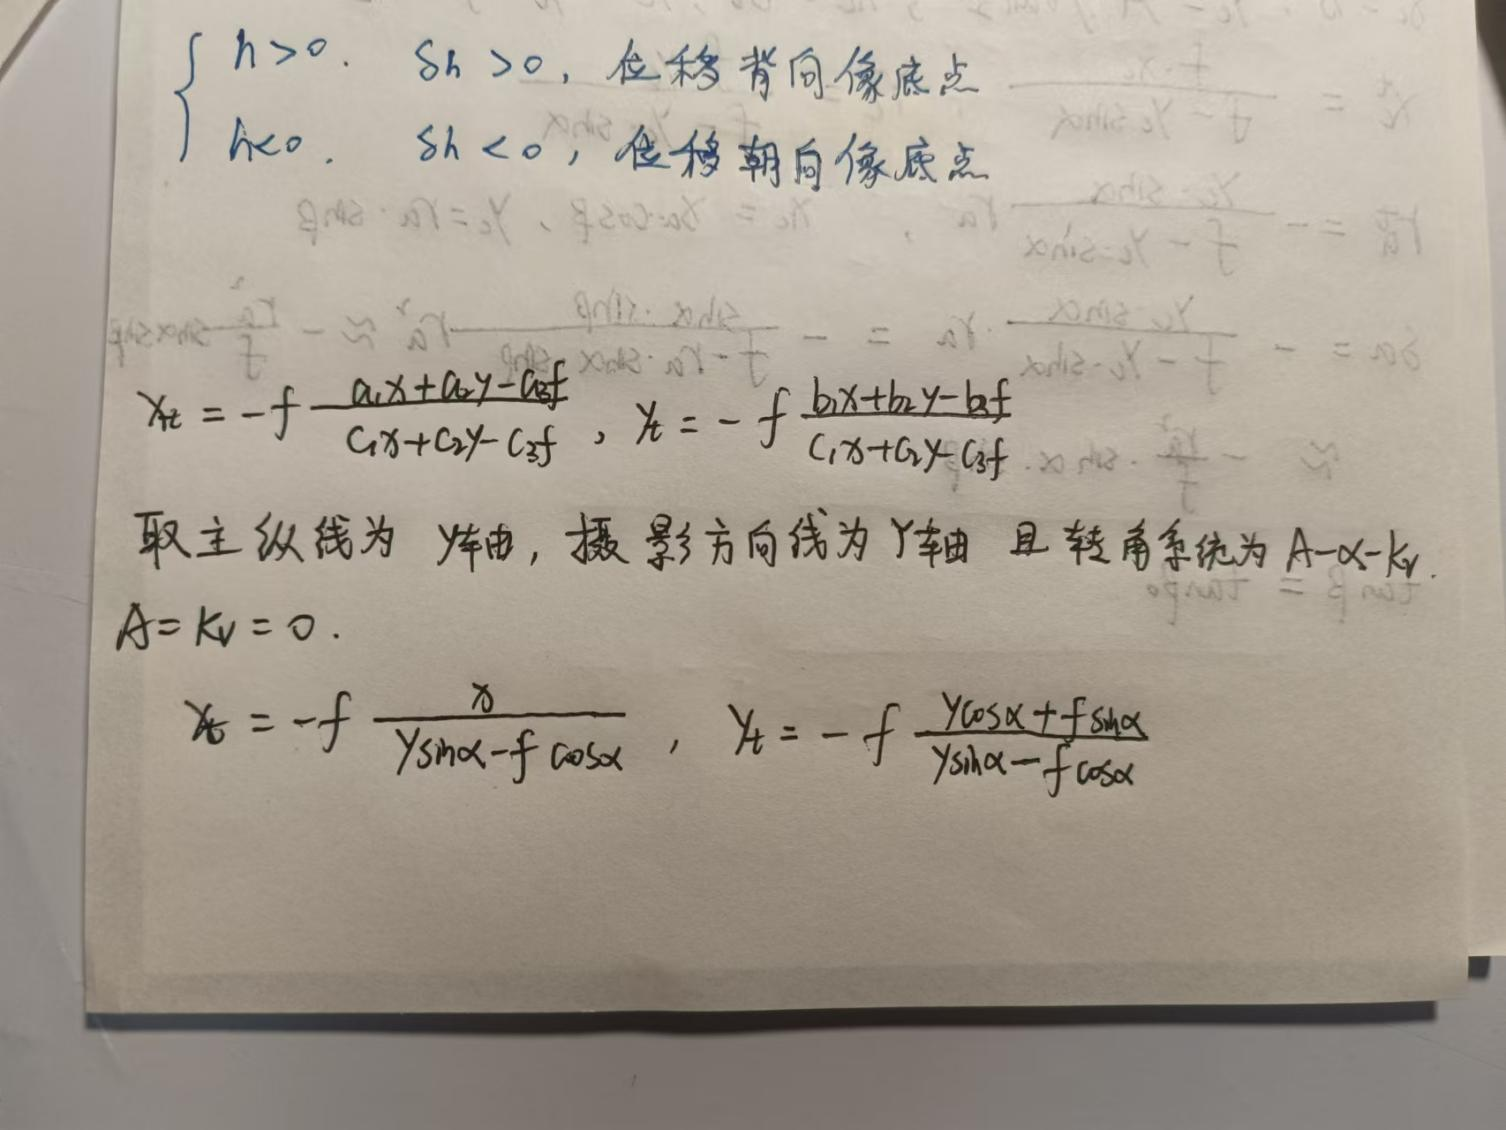 { h>0. δh>0, 位移背向像底点
h<0. δh<0, 位移朝向像底点
x_t = -f (a₁x+a₂y-a₃f)/(c₁x+c₂y-c₃f), y_t = -f (b₁x+b₂y-b₃f)/(c₁x+c₂y-c₃f)
取主纵线为 y轴, 摄影方向线为Y轴 且 转角系统为 A-α-κᵥ.
A=κᵥ=0.
x_t = -f x/(ysinα-f cosα), y_t = -f (ycosα+fsinα)/(ysinα-f cosα)